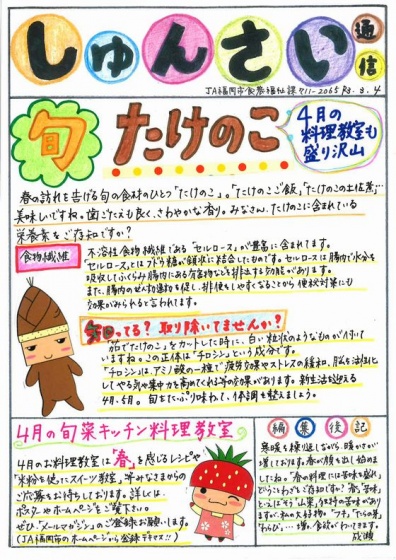 しゅんさい通信
JA福岡市食農福祉課 711-2065 R3.3.4
旬 たけのこ
4月の
料理教室も
盛り沢山
春の訪れを告げる旬の食材のひとつ「たけのこ」。「たけのこご飯」「たけのこの土佐煮」…
美味しいですね。歯ごたえも良く、さわやかな香り。みなさん、たけのこに含まれている
栄養素をご存知ですか?
食物繊維
不溶性食物繊維である"セルロース"が豊富に含まれてます。
「セルロース」とはブドウ糖が鎖状に結合したものです。セルロースは腸内で水分を
吸収してふくらみ腸内にある有害物などを排出する効能があります。
また、腸内のぜん動運動を促し、排便をしやすくなることから便秘対策にも
効果がみられると言われてます。
知ってる?取り除いてませんか?
茹で「たけのこ」をカットした時に、白い粒状のようなものが付いて
いますね。この正体は「チロシン」という成分です。
「チロシン」は、アミノ酸の一種で疲労効果やストレスの緩和、脳を活性化
してやる気や集中力を高めてくれる等の効果があります。新生活を迎える
4月・5月。旬をたっぷり味わって、体調を整えましょう。
4月の旬菜キッチン料理教室
4月のお料理教室は"春"を感じるレシピや
"米粉を使ったスイーツ教室"等みなさまからの
ご応募をお待ちしております。詳しくは、
ポスターやホームページをご覧下さい。
ぜひ「メールマガジン」のご登録お願いします。
(JA福岡市のホームページから登録デキマス!!)
編集後記
寒暖を繰り返しながら、暖かさが
増しております。春が顔を出し始め
ましたね。"春の料理には苦味を盛れ"
ということわざをご存知ですか?春、苦味
といえばそう"山菜"。今が旬の苦味があり
ますが、私の大好物"フキ"、"たらの芽"
"わらび"…増々食欲がわいてきます。
成瀬